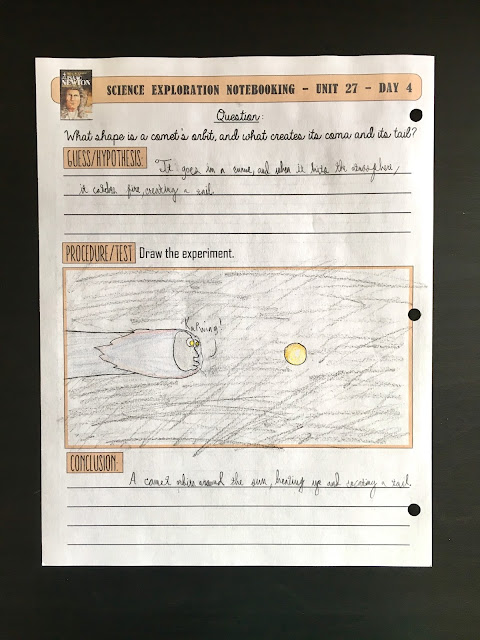 ISAAC NEWTON
SCIENCE EXPLORATION NOTEBOOKING - UNIT 27 - DAY 4
Question:
What shape is a comet's orbit, and what creates its coma and its tail?
GUESS/HYPOTHESIS:
It goes in a curve, and when it hits the atmosphere,
it catches fire, creating a tail.
PROCEDURE/TEST: Draw the experiment.
CONCLUSION:
A comet orbits around the sun, heating up and creating a tail.